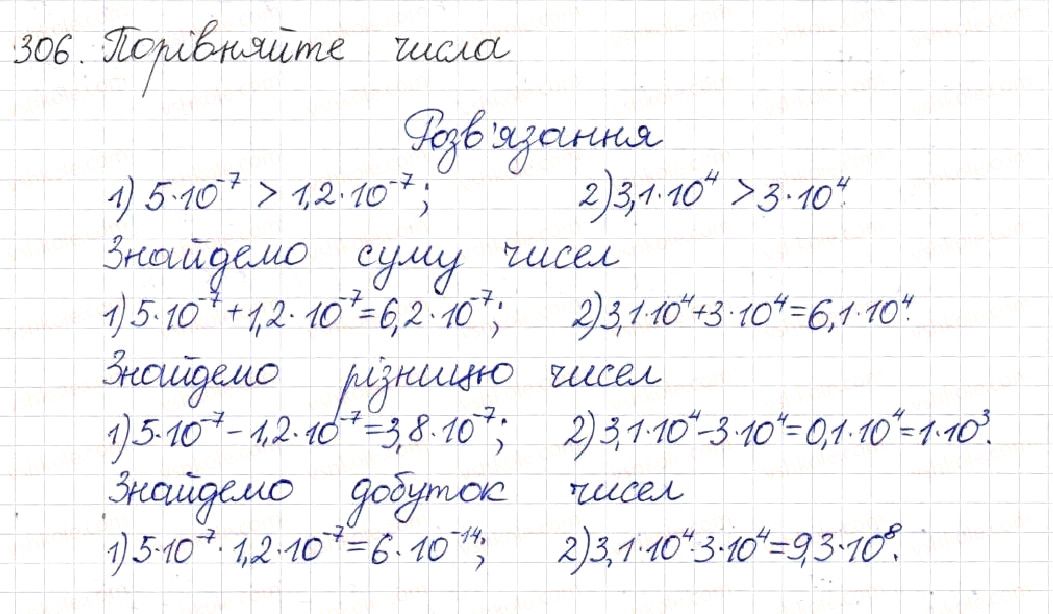 306. Порівняйте числа
Розв'язання
1) 5·10⁻⁷ > 1,2·10⁻⁷; 2) 3,1·10⁴ > 3·10⁴.
Знайдемо суму чисел
1) 5·10⁻⁷ + 1,2·10⁻⁷ = 6,2·10⁻⁷; 2) 3,1·10⁴ + 3·10⁴ = 6,1·10⁴.
Знайдемо різницю чисел
1) 5·10⁻⁷ – 1,2·10⁻⁷ = 3,8·10⁻⁷; 2) 3,1·10⁴ – 3·10⁴ = 0,1·10⁴ = 1·10³.
Знайдемо добуток чисел
1) 5·10⁻⁷ · 1,2·10⁻⁷ = 6·10⁻¹⁴; 2) 3,1·10⁴ · 3·10⁴ = 9,3·10⁸.